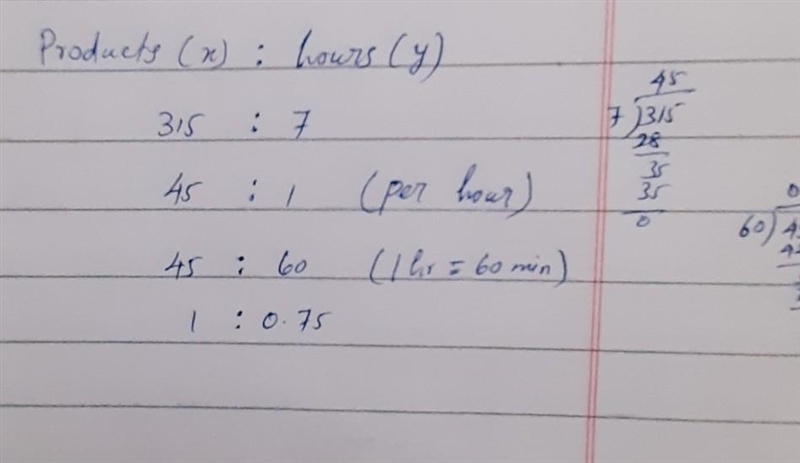 Products (x) : hours (y)
315 : 7
45 : 1 (per hour)
45 : 60 (1 hr = 60 min)
1 : 0.75
45
7)315
28
35
35
0
0
60)45